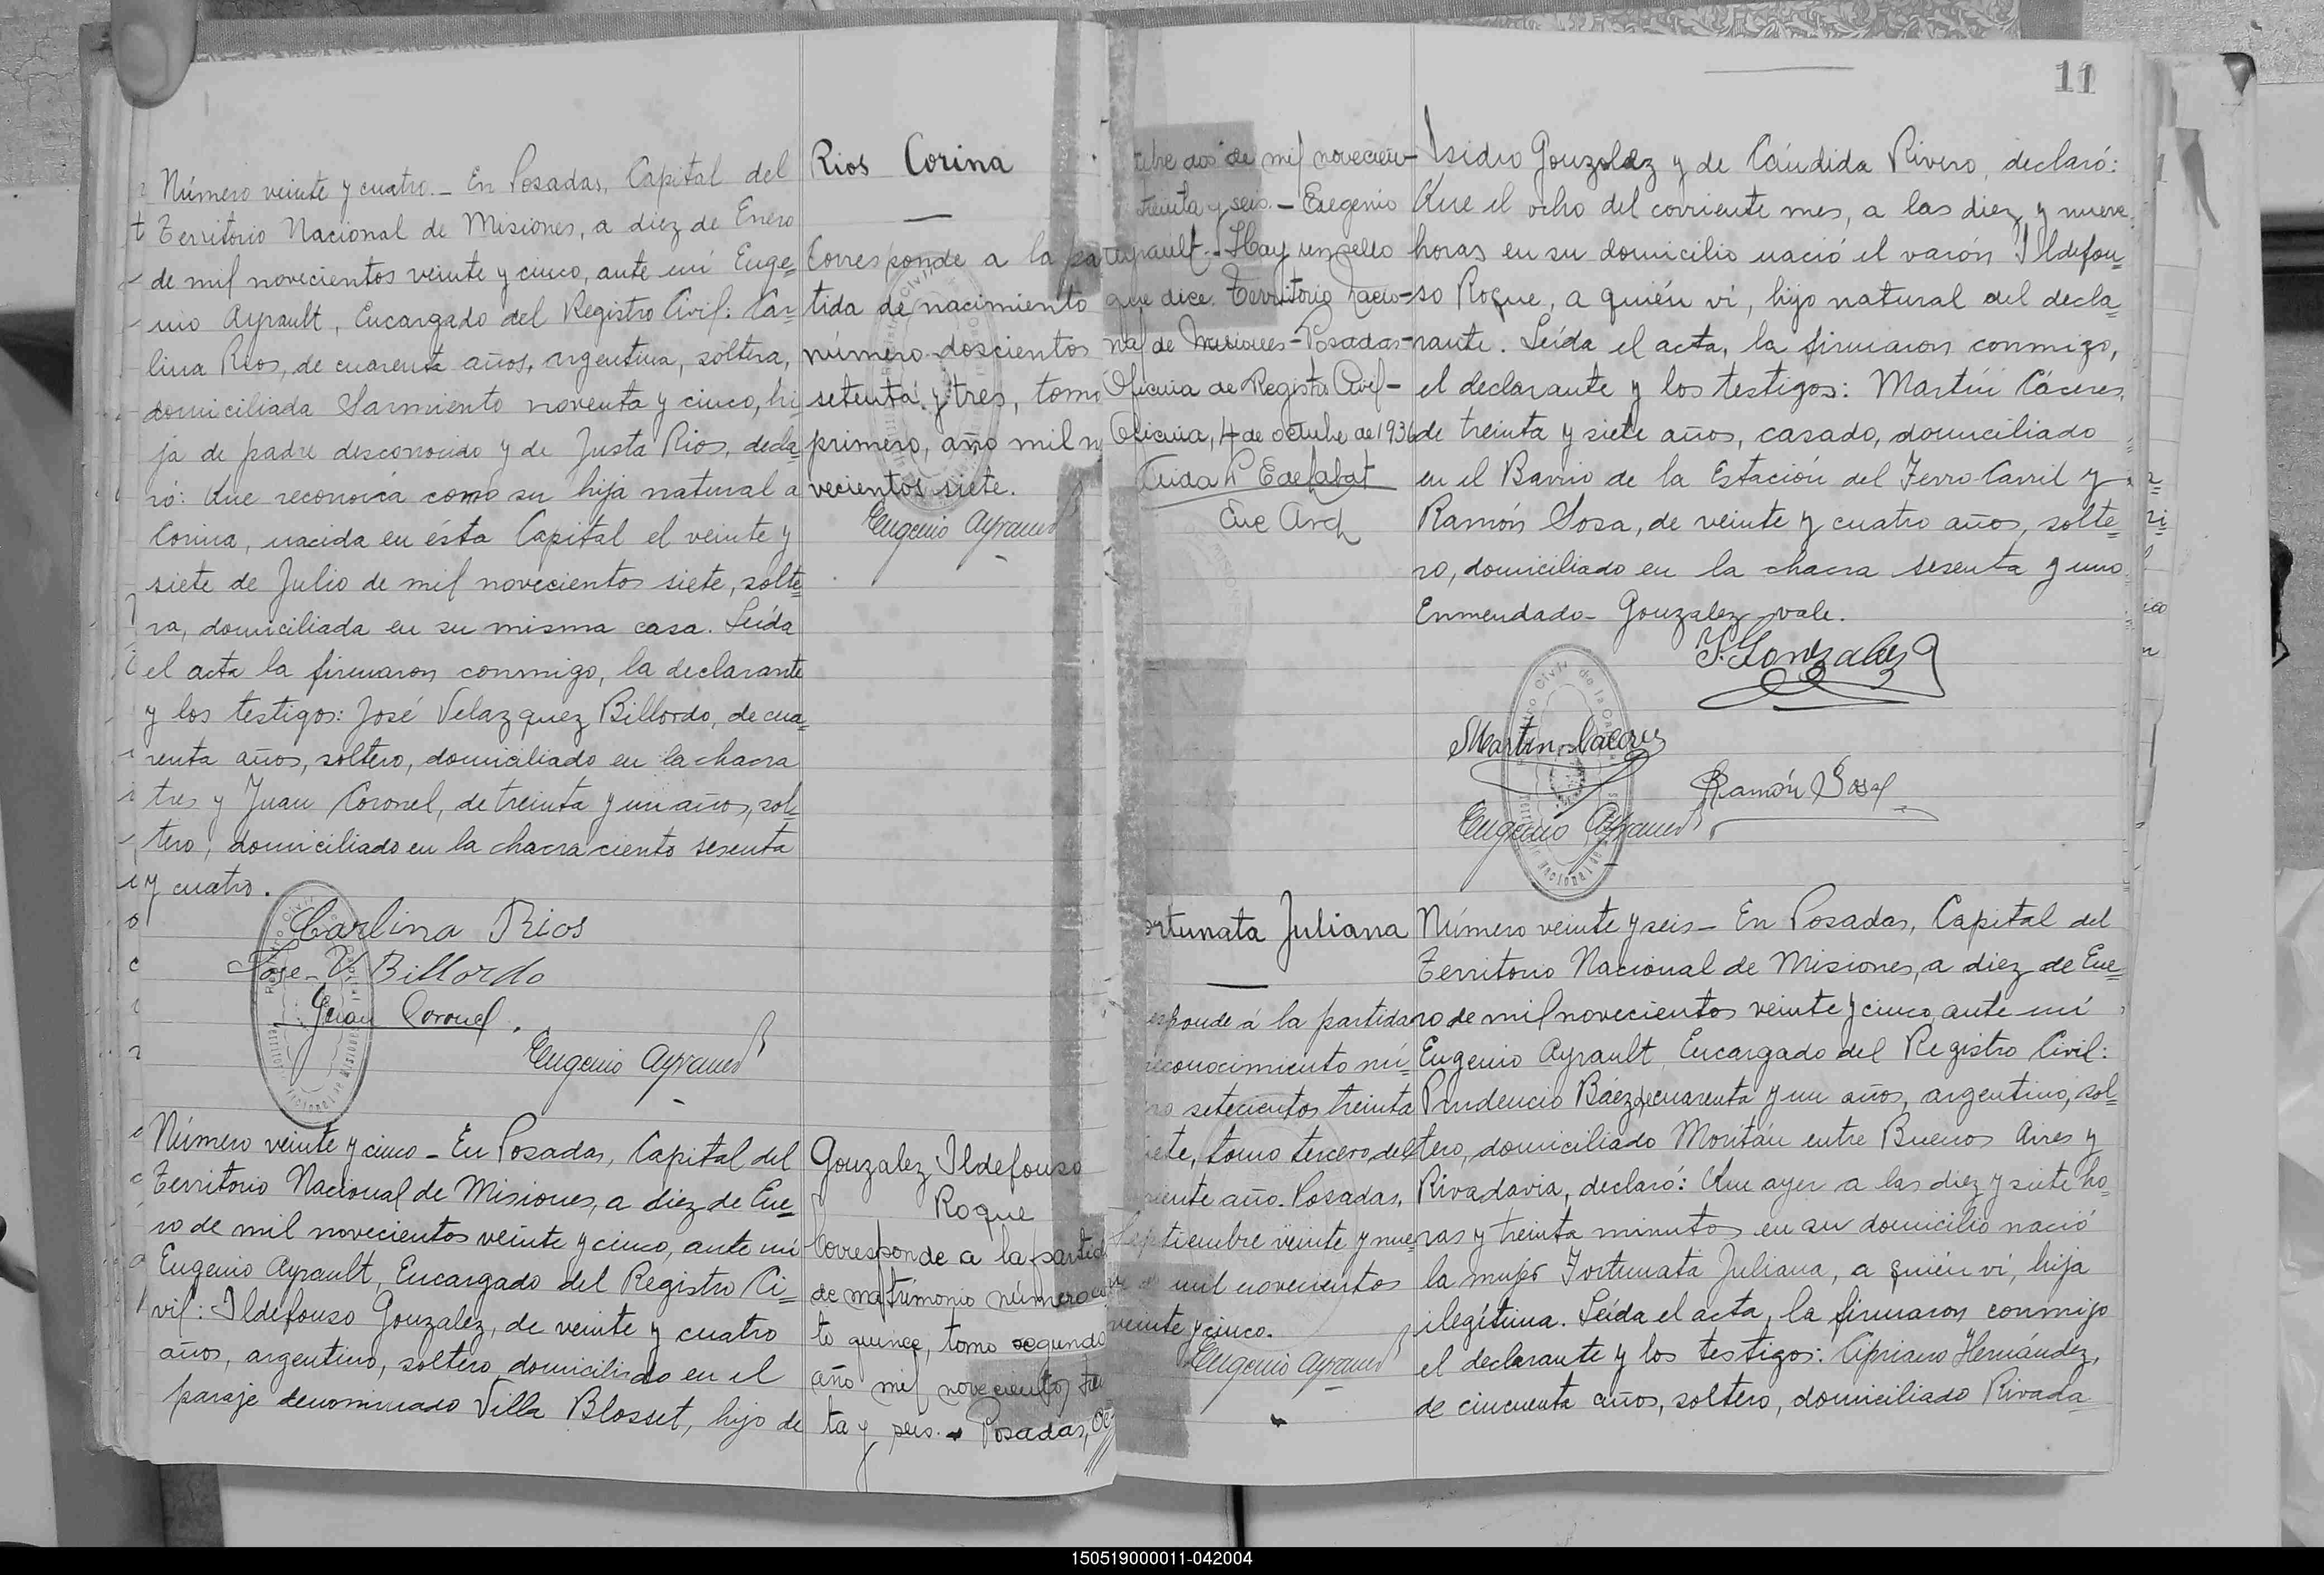 Número veinte y cuatro.- En Posadas, Capital del
Territorio Nacional de Misiones, a diez de Enero
de mil novecientos veinte y cinco, ante mí Euge=
nio Ayrault, Encargado del Registro Civil: Car=
lina Rios, de cuarenta años, argentina, soltera,
domiciliada Sarmiento noventa y cinco, hi
ja de padre desconocido y de Justa Rios, decla=
ró: Que reconocía como su hija natural a
Corina, nacida en ésta Capital el veinte y
siete de Julio de mil novecientos siete, solte=
ra, domiciliada en su misma casa. Leída
el acta la firmaron conmigo, la declarante
y los testigos: José Velazquez Billordo, de cua=
renta años, soltero, domiciliado en la chacra
tres y Juan Coronel, de treinta y un años, sol=
tero, domiciliado en la chacra ciento sesenta
y cuatro.
Carlina Rios
Jose V. Billordo
Juan Coronel.
Eugenio Ayrault
Rios Corina
Corresponde a la par
tida de nacimiento
número doscientos
setenta y tres, tomo
primero, año mil no
vecientos siete.
Eugenio Ayrault
Número veinte y cinco - En Posadas, Capital del
Territorio Nacional de Misiones, a diez de Ene=
ro de mil novecientos veinte y cinco, ante mí
Eugenio Ayrault, Encargado del Registro Ci=
vil: Ildefonso Gonzalez, de veinte y cuatro
años, argentino, soltero, domiciliado en el
paraje denominado Villa Blosset, hijo de
Gonzalez Ildefonso
Roque
Corresponde a la partid
de matrimonio número
to quince, tomo segundo
año mil novecientos
ta y seis. - Posadas, Oc
11
tubre dos de mil novecien-
treinta y seis. - Eugenio
Ayrault - Hay un sello
que dice. Territorio Nacio-
nal de Misiones - Posadas -
Oficina de Registro Civil -
Oficina, 4 de octubre de 1936
Enc Arch
Isidro Gonzalez y de Cándida Rivero, declaró:
Que el ocho del corriente mes, a las diez y nueve
horas en su domicilio nació el varón Ildefon=
so Roque, a quién ví, hijo natural del decla=
rante. Leída el acta, la firmaron conmigo,
el declarante y los testigos: Martín Cáceres,
de treinta y siete años, casado, domiciliado
en el Barrio de la Estación del Ferro-Carril y
Ramón Sosa, de veinte y cuatro años, solte=
ro, domiciliado en la chacra sesenta y uno
Enmendado - Gonzalez - vale.
I. Gonzalez
Martin Caceres
Ramón Sosa
Eugenio Ayrault
ortunata Juliana
esponde á la partida
reconocimiento nú=
ro setecientos treinta
iete, tomo tercero, del
riente año. Posadas,
Septiembre veinte y nue=
ve de mil novecientos
veinte y cinco.
Eugenio Ayrault
Número veinte y seis - En Posadas, Capital del
Territorio Nacional de Misiones, a diez de Ene=
ro de mil novecientos veinte y cinco, ante mí
Eugenio Ayrault, Encargado del Registro Civil:
Prudencio Báez, de cuarenta y un años, argentino, sol=
tero, domiciliado Moritán entre Buenos Aires y
Rivadavia, declaró: Que ayer a las diez y siete ho=
ras y treinta minutos en su domicilio nació
la mujer Fortunata Juliana, a quién ví, hija
ilegítima. Leída el acta, la firmaron conmigo
el declarante y los testigos: Cipriano Hernández,
de cincuenta años, soltero, domiciliado Rivada=
150519000011-042004